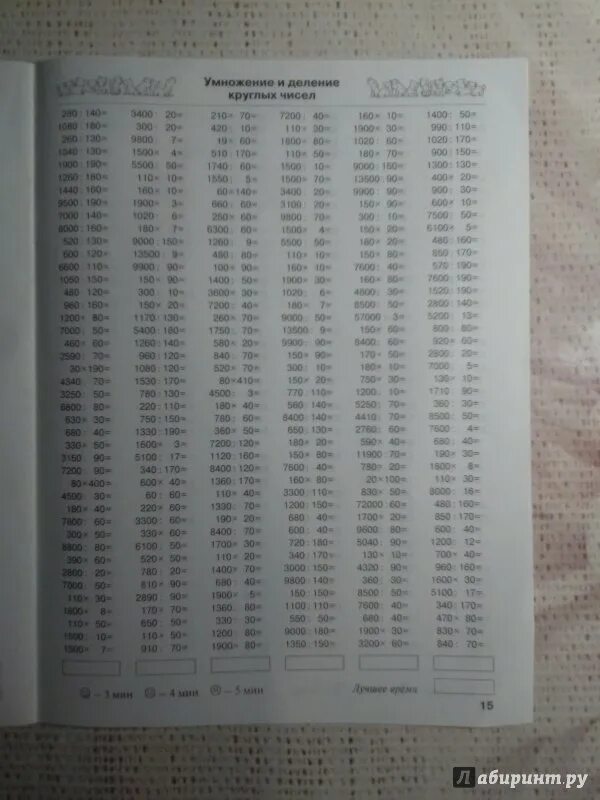 Умножение и деление
круглых чисел
280 : 140= 3400 : 20= 210× 70= 7200 : 40= 160× 10= 1400 : 50=
1080 : 180= 300 : 20= 420 : 10= 110× 30= 1900× 30= 990 : 110=
260 : 130= 9800 : 7= 19× 60= 1600 : 80= 1020 : 60= 1020 : 170=
1040 : 130= 1500× 4= 510 : 170= 110× 50= 180× 70= 900 : 150=
1900 : 190= 5500 : 50= 1740 : 60= 1500× 10= 9000 : 150= 1300 : 130=
1260 : 180= 110× 10= 1550 : 5= 1500× 70= 13500 : 90= 400× 20=
1440 : 160= 160× 10= 60×140= 3400 : 20= 9900 : 90= 960 : 30=
9500 : 190= 1900× 3= 660 : 60= 3100 : 20= 150× 90= 600× 10=
7000 : 140= 1020 : 6= 250× 60= 9800 : 70= 300 : 10= 7500 : 50=
8000 : 160= 180× 7= 6300 : 60= 1500× 4= 150× 20= 6100× 5=
520 : 130= 9000 : 150= 1260 : 9= 5500 : 50= 180× 20= 480 : 160=
600 : 120= 13500 : 9= 480 : 80= 110× 10= 150× 80= 850 : 170=
6600 : 110= 9900 : 90= 100× 90= 160× 10= 7600 : 40= 570 : 190=
1050 : 150= 150× 90= 1400 : 50= 1900× 30= 160× 80= 7600 : 190=
480 : 120= 300 : 10= 3600× 30= 1020 : 6= 4500 : 30= 1520 : 190=
960 : 160= 150× 20= 7200 : 40= 180× 7= 8500 : 50= 2800 : 140=
1200× 80= 1170 : 130= 260× 70= 9000 : 50= 57000 : 3= 5200 : 13=
7000 : 50= 5400 : 180= 1750 : 70= 13500 : 9= 150× 60=
460 : 60= 1260 : 140= 580× 20= 9900 : 90= 8400 : 60= 920× 60=
2590 : 70= 960 : 120= 840 : 70= 150× 90= 170× 50= 2800 : 20=
30×190= 1080 : 120= 520× 70= 300 : 10= 180× 10= 7000 : 5=
4340 : 70= 1530 : 170= 80×410= 150× 20= 750× 30= 130× 10=
3250 : 50= 780 : 130= 4500 : 3= 770 : 110= 1200 : 10= 1710 : 90=
6800 : 80= 220 : 110= 180× 40= 560 : 140= 5250 : 70= 360 : 30=
630× 30= 750 : 150= 780 : 60= 8400 : 140= 4410 : 70= 8500 : 50=
680 : 40= 1330 : 190= 360× 50= 650 : 130= 2760 : 60= 7600 : 4=
330× 50= 1600× 3= 7200 : 120= 180× 20= 590× 40= 680 : 40=
3150 : 90= 5100 : 17= 1120 : 160= 150× 80= 11900 : 70= 190× 30=
7200 : 90= 340 : 170= 8400 : 120= 7600 : 40= 780 : 20= 1600× 8=
80×400= 600× 40= 1360 : 170= 160× 80= 20×100= 110× 30=
4500 : 30= 60 : 60= 110× 40= 3300 : 110= 830× 50= 8000 : 16=
180× 40= 220× 60= 1330 : 70= 1200 : 150= 72000 : 60= 480 : 160=
7800 : 60= 3300 : 60= 190× 20= 680 : 40= 1700× 20= 850 : 170=
300× 50= 330× 60= 8400 : 70= 600 : 40= 9600 : 80= 600 : 40=
8800 : 80= 6100 : 50= 1700× 30= 720 : 180= 5040 : 90= 1200 : 12=
390× 60= 520× 50= 110× 20= 340 : 170= 130× 10= 700× 40=
2860 : 20= 780 : 20= 1400× 70= 3000 : 150= 4320 : 90= 960 : 160=
7500 : 50= 810× 90= 680 : 40= 9800 : 140= 360 : 30= 1600× 30=
110× 30= 2890 : 90= 1900× 5= 150 : 150= 8500 : 50= 5100 : 17=
1600× 8= 170× 70= 1360 : 80= 1100 : 110= 7600 : 40= 340 : 170=
110× 50= 650 : 50= 330 : 30= 550 : 50= 680 : 40= 470× 80=
1500 : 10= 110× 50= 1200 : 80= 9000 : 180= 1900× 30= 830× 70=
1900× 7= 910 : 70= 1900× 80= 1350 : 150= 3200× 60= 840 : 70=
– 3 мин – 4 мин – 5 мин Лучшее время
15
Лабиринт.ру